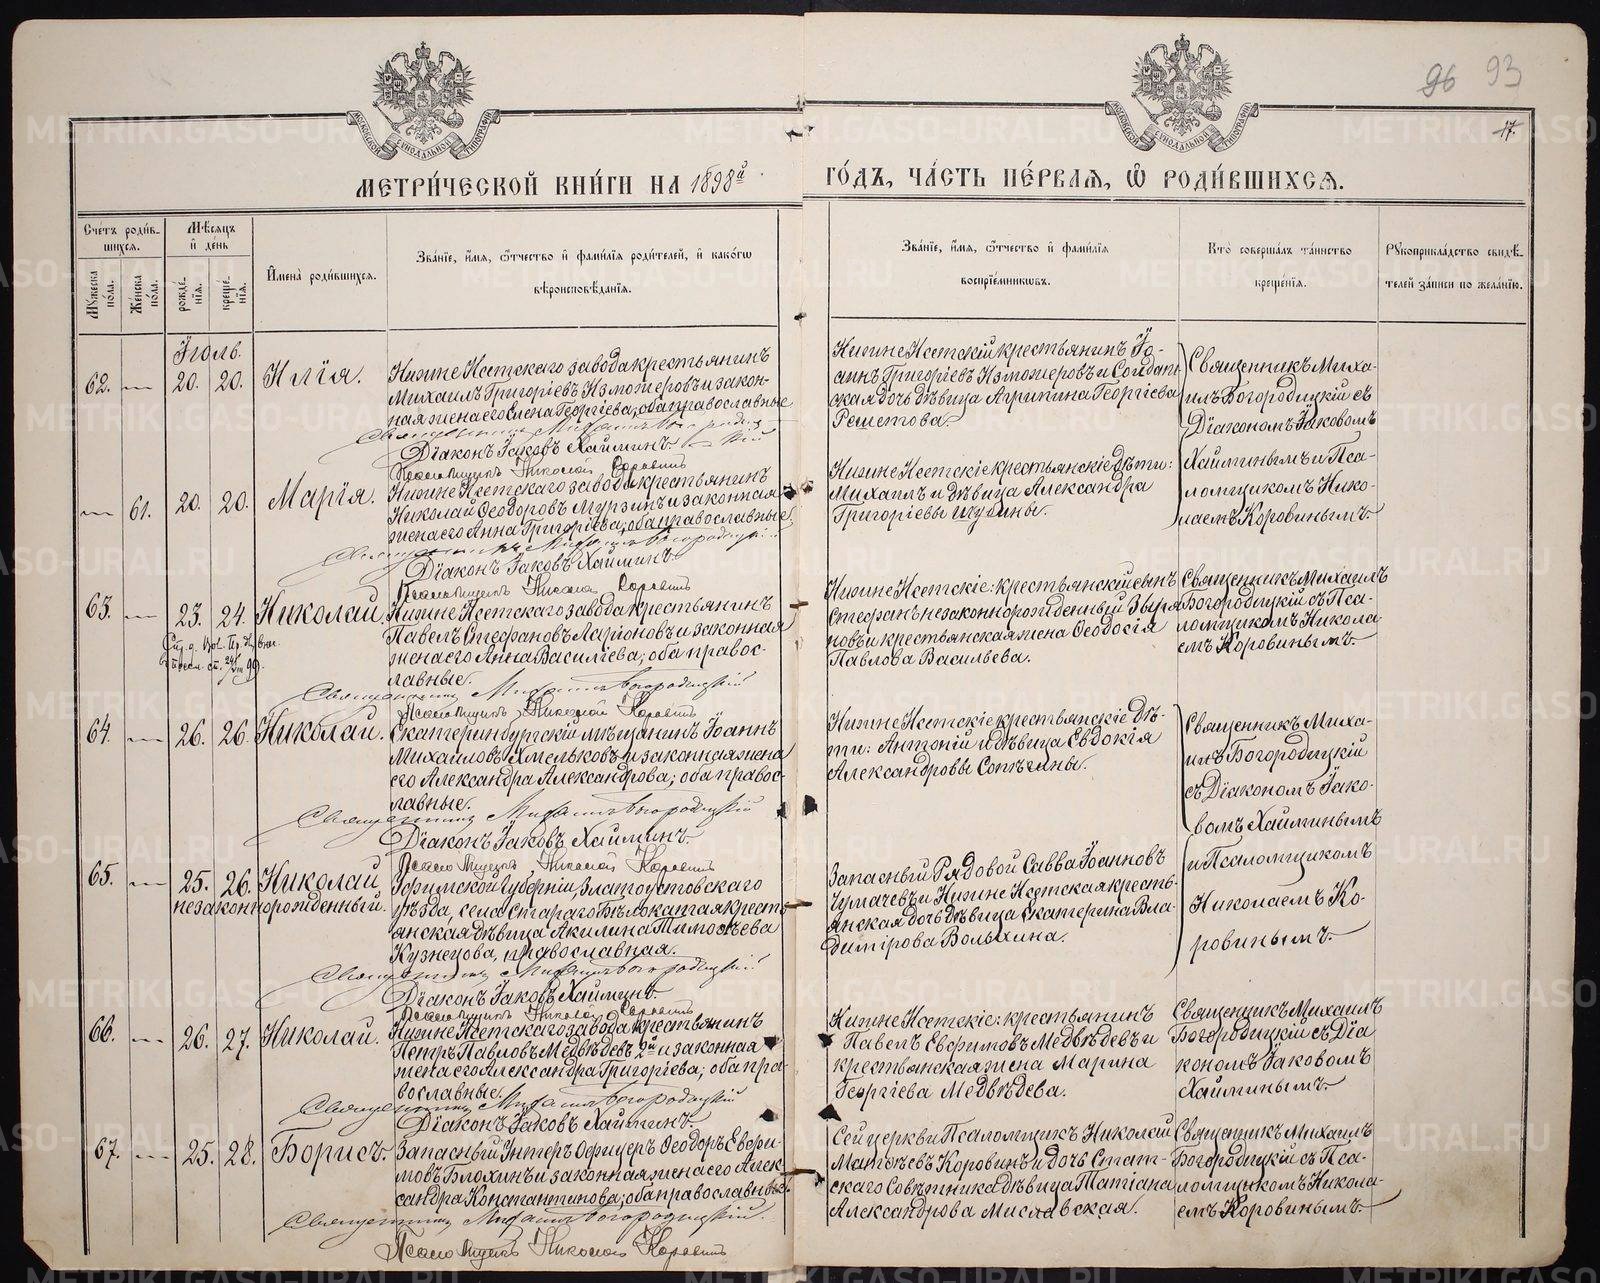 96 93
17.
МЕТРИ́ЧЕСКОЙ КНИ́ГИ НА 1898й ГО́ДЪ, ЧА́СТЬ ПЕ́РВАЯ, Ѿ РОДИ́ВШИХСЯ.
Сче́тъ роди́в-
шихся.
Мꙋжеска пола.
Женска по́ла.
Мѣ́сяцъ
и де́нь
рожде-
нія.
креще-
нія.
Имена̀ роди́вшихся.
Зва́ніе, и́мя, ѻ́тчество и фами́лія роди́телей, и како́гѡ
вѣроисповѣ́данія.
Зва́ніе, и́мя, ѻ́тчество и фами́лія
воспріе́мникѡвъ.
Кто̀ соверша́лъ та́инство
креще́нія.
Рꙋкоприкла́дство свидѣ́-
телей за́писи по жела́нію.
Іюль.
62. — 20. 20. Илія.
Нижне Исетскаго завода крестьянинъ
Михаилъ Григоріевъ Изможеровъ и закон-
ная жена его Елена Георгіева; оба православные
Священникъ Михаилъ Богородицкій
Діаконъ Іаковъ Хайминъ.
Псаломщикъ Николай Коровинъ
Нижне Исетскій крестьянинъ Іо-
аннъ Григоріевъ Изможеровъ и Солдат-
ская дочь дѣвица Агрипина Георгіева
Решетова.
Священникъ Миха-
илъ Богородицкій съ
Діакономъ Іаковомъ
Хайминымъ и Пса-
ломщикомъ Нико-
лаемъ Коровинымъ.
— 61. 20. 20. Марія.
Нижне Исетскаго завода крестьянинъ
Николай Ѳеодоровъ Мурзинъ и законная
жена его Анна Григоріева; оба православные.
Священникъ Михаилъ Богородицкій
Діаконъ Іаковъ Хайминъ.
Псаломщикъ Николай Коровинъ
Нижне Исетскіе крестьянскіе дѣти:
Михаилъ и дѣвица Александра
Григоріевы Шубины.
63. — 23. 24. Николай.
Нижне Исетскаго завода крестьянинъ
Павелъ Стефановъ Ларіоновъ и законная
жена его Анна Васильева; оба правос-
лавные.
Священникъ Михаилъ Богородицкій
Псаломщикъ Николай Коровинъ
Нижне Исетскіе: крестьянскій сынъ
Стефанъ незаконнорожденный Звѣря-
новъ и крестьянская жена Ѳеодосія
Павлова Васильева.
Священникъ Михаилъ
Богородицкій съ Пса-
ломщикомъ Никола-
емъ Коровинымъ.
64. — 26. 26. Николай.
Екатеринбургскій мѣщанинъ Іоаннъ
Михаиловъ Хмельковъ и законная жена
его Александра Александрова; оба правос-
лавные.
Священникъ Михаилъ Богородицкій
Діаконъ Іаковъ Хайминъ.
Псаломщикъ Николай Коровинъ
Нижне Исетскіе крестьянскіе дѣ-
ти: Антоній и дѣвица Евдокія
Александровы Сопѣгины.
Священникъ Миха-
илъ Богородицкій
съ Діакономъ Іако-
вомъ Хайминымъ
и Псаломщикомъ
Николаемъ Ко-
ровинымъ.
65. — 25. 26. Николай,
незаконнорожденный.
Уфимской Губерніи, Златоустовскаго
уѣзда, села Стараго Бѣлокатая кресть-
янская дѣвица Акилина Тимоѳеева
Кузнецова, православная.
Священникъ Михаилъ Богородицкій
Діаконъ Іаковъ Хайминъ.
Псаломщикъ Николай Коровинъ
Запасный Рядовой Савва Іоанновъ
Чумачевъ и Нижне Исетская кресть-
янская дочь дѣвица Екатерина Вла-
димірова Волыхина.
66. — 26. 27. Николай.
Нижне Исетскаго завода крестьянинъ
Петръ Павловъ Медвѣдевъ 2й и законная
жена его Александра Григоріева; оба пра-
вославные.
Священникъ Михаилъ Богородицкій
Діаконъ Іаковъ Хайминъ.
Нижне Исетскіе: крестьянинъ
Павелъ Евѳимовъ Медвѣдевъ и
крестьянская жена Марина
Георгіева Медвѣдева.
Священникъ Михаилъ
Богородицкій съ Діа-
кономъ Іаковомъ
Хайминымъ.
67. — 25. 28. Борисъ.
Запасный Унтеръ Офицеръ Ѳеодоръ Евѳи-
мовъ Блохинъ и законная жена его Алек-
сандра Константинова; оба православные.
Священникъ Михаилъ Богородицкій.
Псаломщикъ Николай Коровинъ
Сей церкви Псаломщикъ Николай
Матѳѣевъ Коровинъ и дочь Стат-
скаго Совѣтника дѣвица Татіана
Александрова Мислaвская.
Священникъ Михаилъ
Богородицкій съ Пса-
ломщикомъ Никола-
емъ Коровинымъ.
METRIKI.GASO-URAL.RU